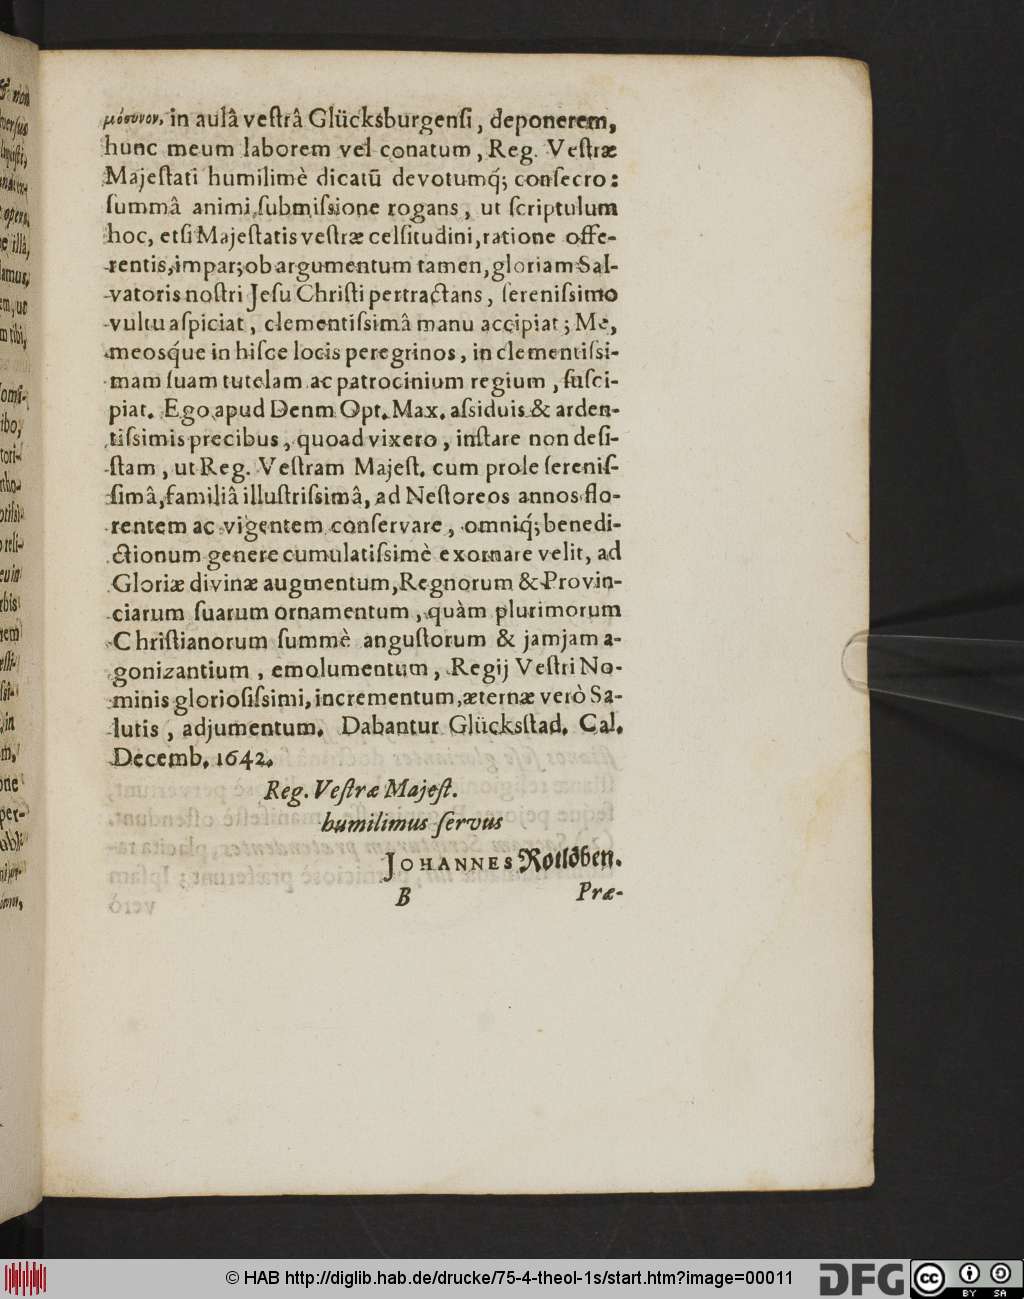 μόσυνον, in aulâ veſtrâ Glücksburgenſi, deponerem,
hunc meum laborem vel conatum, Reg. Veſtræ
Majeſtati humilimè dicatū devotumq́; conſecro:
ſummâ animi ſubmiſsione rogans, ut ſcriptulum
hoc, etſi Majeſtatis veſtræ celſitudini, ratione offe-
rentis, impar; ob argumentum tamen, gloriam Sal-
vatoris noſtri Jeſu Chriſti pertractans, ſereniſsimo
vultu aſpiciat, clementiſsimâ manu accipiat; Me,
meosq́ue in hiſce locis peregrinos, in clementiſsi-
mam ſuam tutelam ac patrocinium regium, ſuſci-
piat. Ego apud Denm Opt. Max. aſsiduis & arden-
tiſsimis precibus, quoad vixero, inſtare non deſi-
ſtam, ut Reg. Veſtram Majeſt. cum prole ſereniſ-
ſimâ, familiâ illuſtriſsimâ, ad Neſtoreos annos flo-
rentem ac vigentem conſervare, omniq́; benedi-
ctionum genere cumulatiſsimè exornare velit, ad
Gloriæ divinæ augmentum, Regnorum & Provin-
ciarum ſuarum ornamentum, quàm plurimorum
Chriſtianorum ſummè anguſtorum & jamjam a-
gonizantium, emolumentum, Regij Veſtri No-
minis glorioſiſsimi, incrementum, æternæ verò Sa-
lutis, adjumentum. Dabantur Glücksſtad. Cal.
Decemb. 1642.
Reg. Veſtræ Majeſt.
humilimus ſervus
JOHANNES Rotlöben.
B Præ-
© HAB http://diglib.hab.de/drucke/75-4-theol-1s/start.htm?image=00011
DFG
cc BY SA